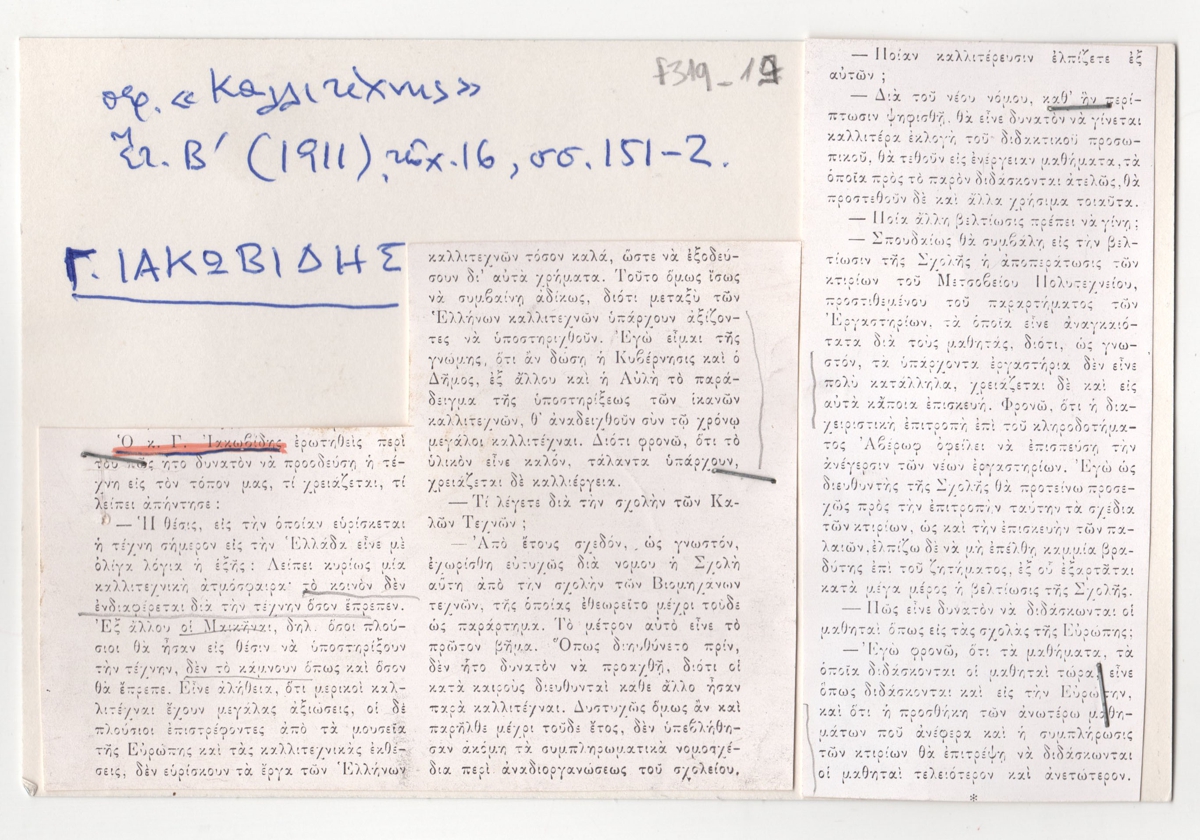 περ. «Καλλιτέχνης»
Ἔτ. Β′ (1911), τεῦχ. 16, σσ. 151-2.
F319_19
Γ. ΙΑΚΩΒΙΔΗΣ
Ὁ κ. Γ. Ἰακωβίδης ἐρωτηθεὶς περὶ
τοῦ πῶς ἦτο δυνατὸν νὰ προοδεύσῃ ἡ τέ-
χνη εἰς τὸν τόπον μας, τί χρειάζεται, τί
λείπει ἀπήντησε :
— Ἡ θέσις, εἰς τὴν ὁποίαν εὑρίσκεται
ἡ τέχνη σήμερον εἰς τὴν Ἑλλάδα εἶνε μὲ
ὀλίγα λόγια ἡ ἑξῆς : Λείπει κυρίως μία
καλλιτεχνικὴ ἀτμόσφαιρα· τὸ κοινὸν δὲν
ἐνδιαφέρεται διὰ τὴν τέχνην ὅσον ἔπρεπεν.
Ἐξ ἄλλου οἱ Μαικῆναι, δηλ. ὅσοι πλού-
σιοι θὰ ἦσαν εἰς θέσιν νὰ ὑποστηρίξουν
τὴν τέχνην, δὲν τὸ κάμνουν ὅπως καὶ ὅσον
θὰ ἔπρεπε. Εἶνε ἀλήθεια, ὅτι μερικοὶ καλ-
λιτέχναι ἔχουν μεγάλας ἀξιώσεις, οἱ δὲ
πλούσιοι ἐπιστρέφοντες ἀπὸ τὰ μουσεῖα
τῆς Εὐρώπης καὶ τὰς καλλιτεχνικὰς ἐκθέ-
σεις, δὲν εὑρίσκουν τὰ ἔργα τῶν Ἑλλήνων
καλλιτεχνῶν τόσον καλά, ὥστε νὰ ἐξοδεύ-
σουν δι' αὐτὰ χρήματα. Τοῦτο ὅμως ἴσως
νὰ συμβαίνῃ ἀδίκως, διότι μεταξὺ τῶν
Ἑλλήνων καλλιτεχνῶν ὑπάρχουν ἀξίζον-
τες νὰ ὑποστηριχθοῦν. Ἐγὼ εἶμαι τῆς
γνώμης, ὅτι ἂν δώσῃ ἡ Κυβέρνησις καὶ ὁ
Δῆμος, ἐξ ἄλλου καὶ ἡ Αὐλὴ τὸ παρά-
δειγμα τῆς ὑποστηρίξεως τῶν ἱκανῶν
καλλιτεχνῶν, θ' ἀναδειχθοῦν σὺν τῷ χρόνῳ
μεγάλοι καλλιτέχναι. Διότι φρονῶ, ὅτι τὸ
ὑλικὸν εἶνε καλόν, τάλαντα ὑπάρχουν,
χρειάζεται δὲ καλλιέργεια.
— Τί λέγετε διὰ τὴν σχολὴν τῶν Κα-
λῶν Τεχνῶν ;
— Ἀπὸ ἔτους σχεδόν, ὡς γνωστόν,
ἐχωρίσθη εὐτυχῶς διὰ νόμου ἡ Σχολὴ
αὕτη ἀπὸ τὴν σχολὴν τῶν Βιομηχάνων
τεχνῶν, τῆς ὁποίας ἐθεωρεῖτο μέχρι τοῦδε
ὡς παράρτημα. Τὸ μέτρον αὐτὸ εἶνε τὸ
πρῶτον βῆμα. Ὅπως διευθύνετο πρίν,
δὲν ἦτο δυνατὸν νὰ προαχθῇ, διότι οἱ
κατὰ καιροὺς διευθυνταὶ κάθε ἄλλο ἦσαν
παρὰ καλλιτέχναι. Δυστυχῶς ὅμως ἂν καὶ
παρῆλθε μέχρι τοῦδε ἔτος, δὲν ὑπεβλήθη-
σαν ἀκόμη τὰ συμπληρωματικὰ νομοσχέ-
δια περὶ ἀναδιοργανώσεως τοῦ σχολείου.
— Ποίαν καλλιτέρευσιν ἐλπίζετε ἐξ
αὐτῶν ;
— Διὰ τοῦ νέου νόμου, καθ' ἣν περί-
πτωσιν ψηφισθῇ, θὰ εἶνε δυνατὸν νὰ γίνεται
καλλιτέρα ἐκλογὴ τοῦ διδακτικοῦ προσω-
πικοῦ, θὰ τεθοῦν εἰς ἐνέργειαν μαθήματα, τὰ
ὁποῖα πρὸς τὸ παρὸν διδάσκονται ἀτελῶς, θὰ
προστεθοῦν δὲ καὶ ἄλλα χρήσιμα τοιαῦτα.
— Ποία ἄλλη βελτίωσις πρέπει νὰ γίνῃ ;
— Σπουδαίως θὰ συμβάλῃ εἰς τὴν βελ-
τίωσιν τῆς Σχολῆς ἡ ἀποπεράτωσις τῶν
κτιρίων τοῦ Μετσοβείου Πολυτεχνείου,
προστιθεμένου τοῦ παραρτήματος τῶν
Ἐργαστηρίων, τὰ ὁποῖα εἶνε ἀναγκαιό-
τατα διὰ τοὺς μαθητάς, διότι, ὡς γνω-
στόν, τὰ ὑπάρχοντα ἐργαστήρια δὲν εἶνε
πολὺ κατάλληλα, χρειάζεται δὲ καὶ εἰς
αὐτὰ κάποια ἐπισκευή. Φρονῶ, ὅτι ἡ δια-
χειριστικὴ ἐπιτροπὴ ἐπὶ τοῦ κληροδοτήμα-
τος Ἀβέρωφ ὀφείλει νὰ ἐπισπεύσῃ τὴν
ἀνέγερσιν τῶν νέων ἐργαστηρίων. Ἐγὼ ὡς
διευθυντὴς τῆς Σχολῆς θὰ προτείνω προσε-
χῶς πρὸς τὴν ἐπιτροπὴν ταύτην τὰ σχέδια
τῶν κτιρίων, ὡς καὶ τὴν ἐπισκευὴν τῶν πα-
λαιῶν, ἐλπίζω δὲ νὰ μὴ ἐπέλθῃ καμμία βρα-
δύτης ἐπὶ τοῦ ζητήματος, ἐξ οὗ ἐξαρτᾶται
κατὰ μέγα μέρος ἡ βελτίωσις τῆς Σχολῆς.
— Πῶς εἶνε δυνατὸν νὰ διδάσκωνται οἱ
μαθηταὶ ὅπως εἰς τὰς σχολὰς τῆς Εὐρώπης ;
— Ἐγὼ φρονῶ, ὅτι τὰ μαθήματα, τὰ
ὁποῖα διδάσκονται οἱ μαθηταὶ τώρα, εἶνε
ὅπως διδάσκονται καὶ εἰς τὴν Εὐρώπην,
καὶ ὅτι ἡ προσθήκη τῶν ἀνωτέρω μαθη-
μάτων ποῦ ἀνέφερα καὶ ἡ συμπλήρωσις
τῶν κτιρίων θὰ ἐπιτρέψῃ νὰ διδάσκωνται
οἱ μαθηταὶ τελειότερον καὶ ἀνετώτερον.
*